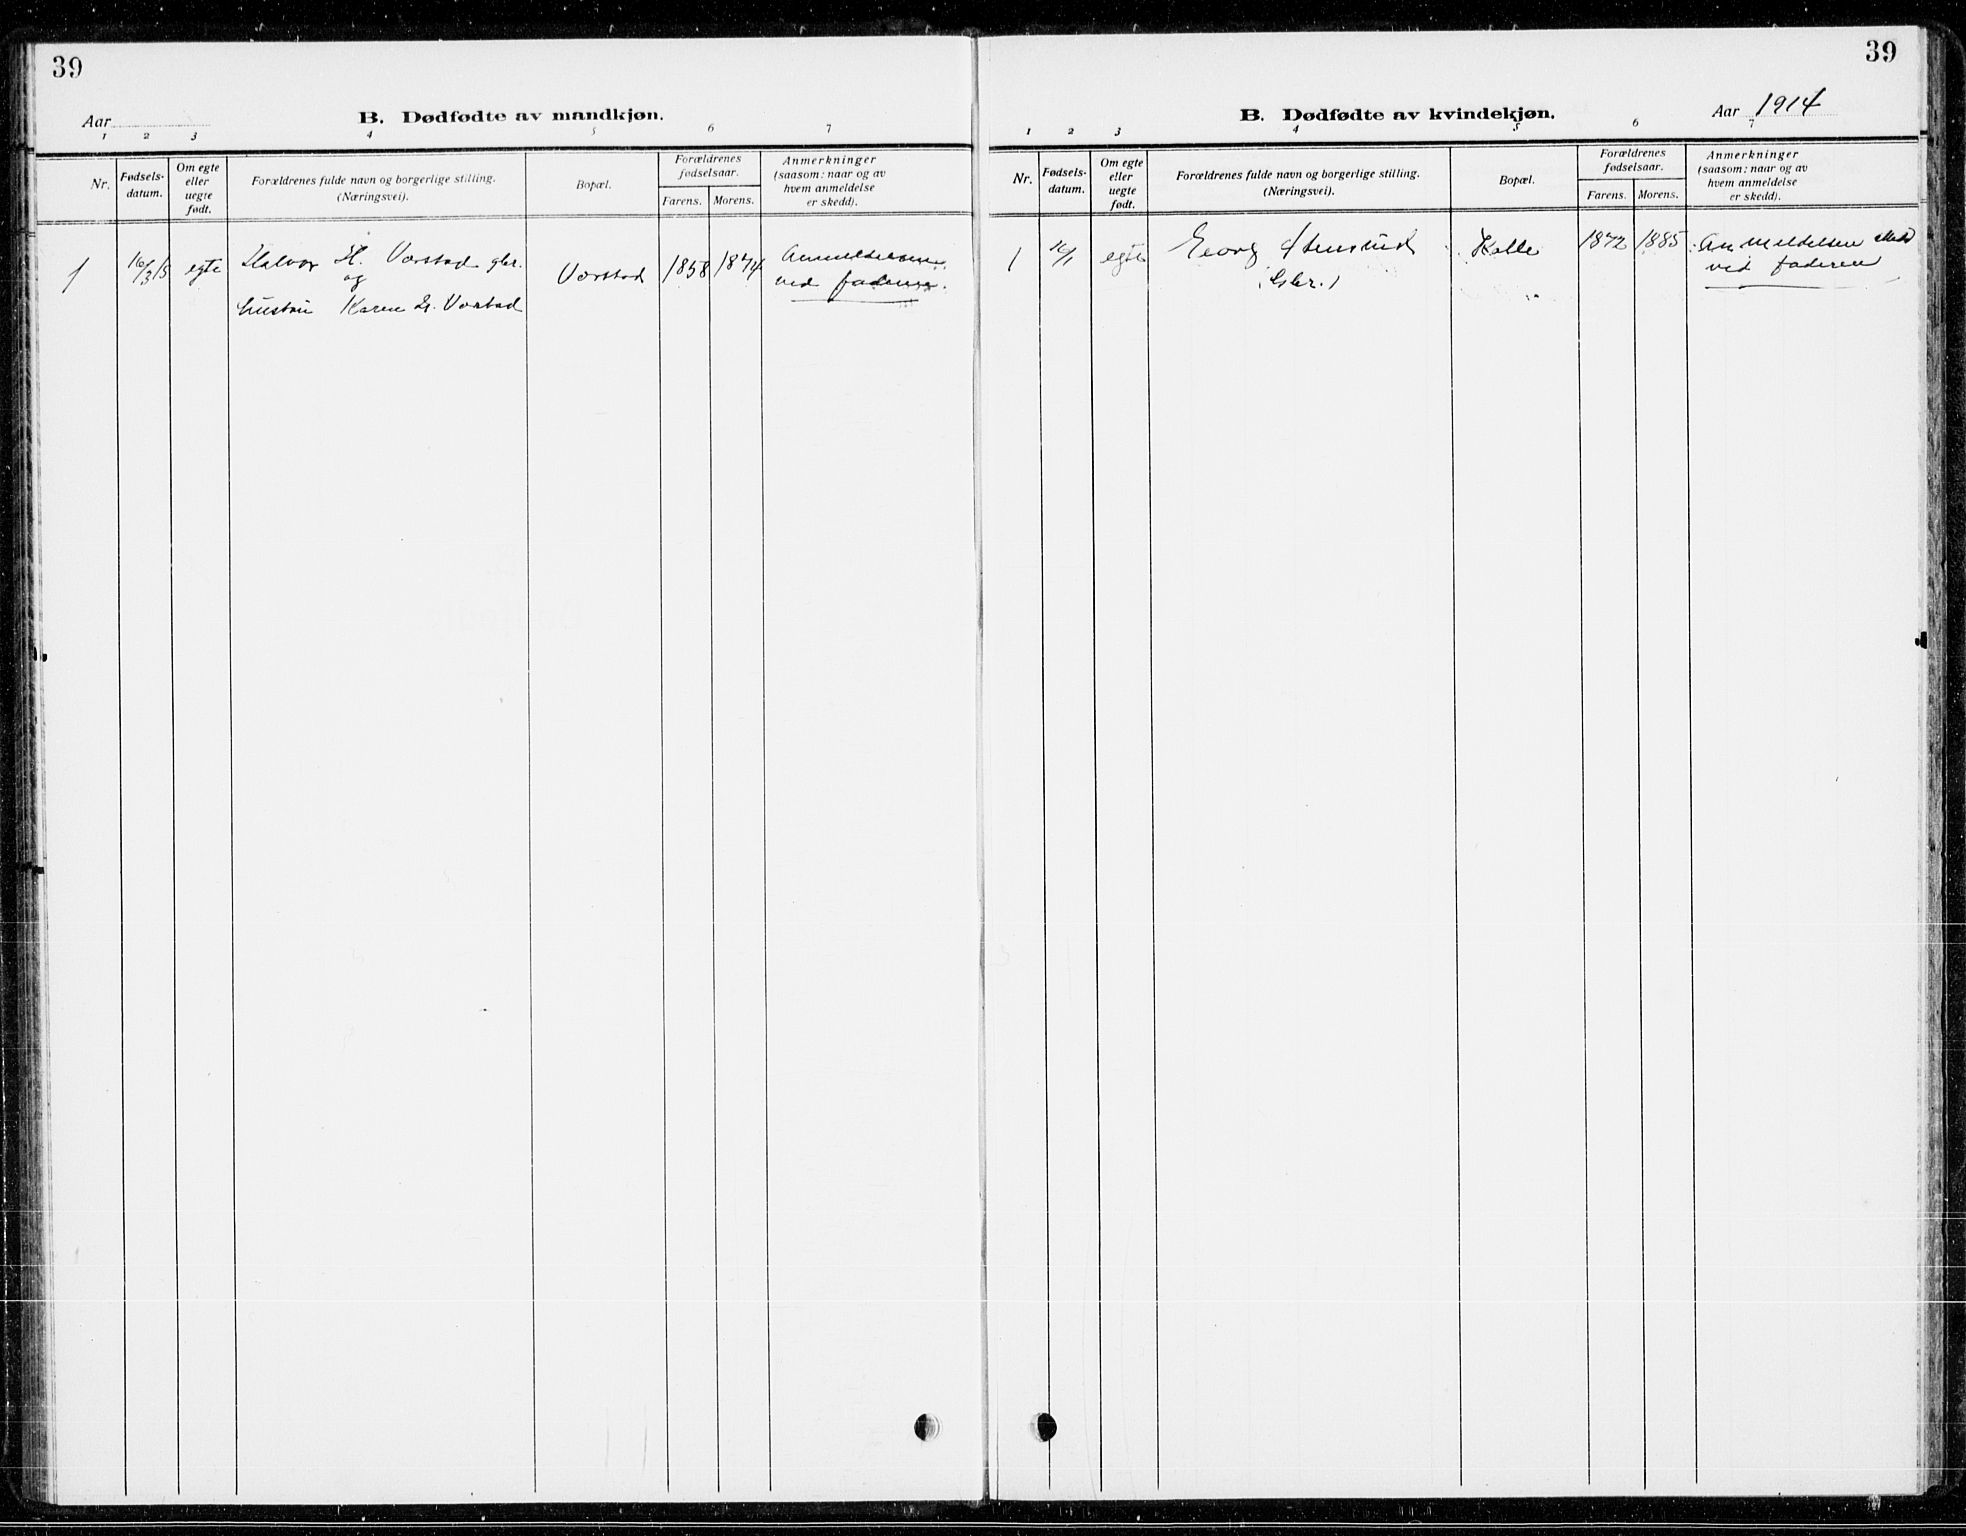 39
Aar
B. Dødfødte av mandkjøn.
1 2 3 4 5 6 7
Nr.
Fødsels-
datum.
Om egte
eller
uegte
født.
Forældrenes fulde navn og borgerlige stilling.
(Næringsvei).
Bopæl.
Forældrenes
fødselsaar.
Farens. Morens.
Anmerkninger
(saasom: naar og av
hvem anmeldelse
er skedd).
1 16/3 15 egte Halvor H. Vorstad gbr. Vorstad 1858 1874 Anmeldelsen
og ved faderen.
hustru Karen H. Vorstad
39
B. Dødfødte av kvindekjøn.
Aar 1914
1 2 3 4 5 6 7
Nr.
Fødsels-
datum.
Om egte
eller
uegte
født.
Forældrenes fulde navn og borgerlige stilling.
(Næringsvei).
Bopæl.
Forældrenes
fødselsaar.
Farens. Morens.
Anmerkninger
(saasom: naar og av
hvem anmeldelse
er skedd).
1 16/1 egte Georg Stensrud Kolle 1872 1885 Anmeldelsen
(Gbr.) ved faderen